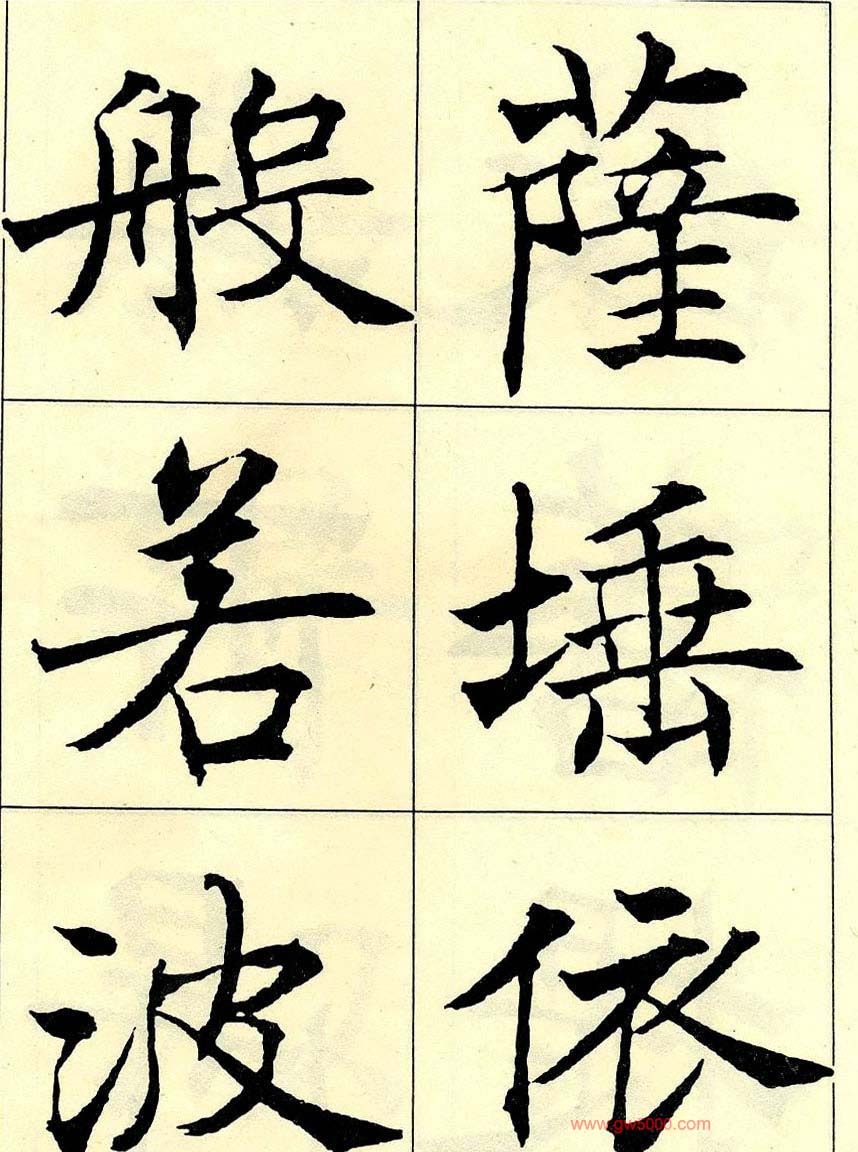 薩埵依
般若波
www.gw5000.com